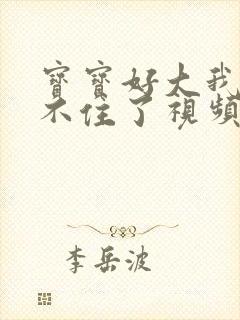 寶寶好大我
不住了視頻
李岳波